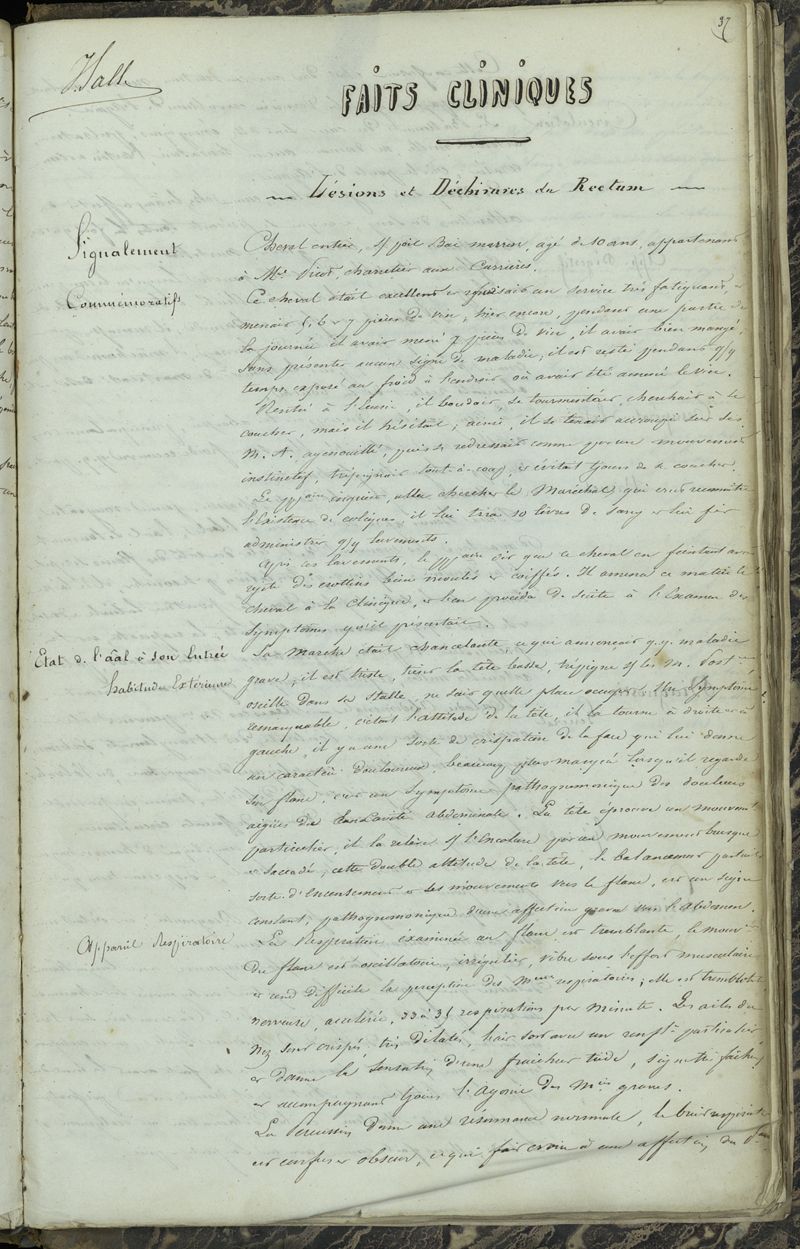 37
FAITS CLINIQUES
Lésions et Déchirures du Rectum
Signalement
Cheval entier, s/ poil Bai marron, agé de 10 ans, appartenant
à Mr. charretier aux Carrières.
Commémoratifs
Ce cheval était excellent et faisait un service très fatiguant,
menait 5, 6 et 7 pièces de vin; hier encore, pendant une partie de
la journée il avait mené 7 pièces de vin, il avait bien mangé,
sans présenter aucun signe de maladie; il est resté pendant q/q
temps exposé au froid à l'endroit où avait été amené le vin.
Rentré à l'écurie, il boudait, se tourmentait, cherchait à se
coucher, mais il hésitait; ainsi, il se tenait accroupi sur ses
M. A. agenouillé, puis se redressait comme par un mouvement
instinctif, trépignait tout-à-coup, et évitait tjours de se coucher.
Le ppaire inquiet, alla chercher le Maréchal qui crut reconnaître
l'Existence de coliques, il lui tira 10 livres de sang et lui fit
administrer q/q lavements.
Après ces lavements, le ppaire vit que ce cheval en fientant avait
rejeté des crottins bien moulés et coiffés. Il amena ce matin le
cheval à la Clinique, et l'on procéda de suite à l'Examen des
symptômes qu'il présentait.
Etat de l'aâl à son Entrée
habitude Extérieure
La Marche était chancelante, ce qui annonçait q.q. maladie
grave, il est triste, tient la tête basse, trépigne s/ les M. Post
oscille dans sa stalle, ne sait quelle place occuper. Un symptôme
remarquable, c'était l'attitude de la tête, il la tourne à droite et à
gauche, il y a une sorte de crispation de la face qui lui donne
un caractère douloureux, beaucoup plus marqué lorsqu'il regarde
son flanc, c'est un symptôme pathognomonique des douleurs
aigües de la cavité abdominale. La tête éprouve un mouvement
particulier, il la relève s/ l'Encolure par un mouvement brusque
et saccadé, cette double attitude de la tête, le balancement particulier
sorte d'Encensement et les mouvements vers le flanc, est un signe
constant, pathognomonique d'une affection grave vers l'abdomen.
Appareil Respiratoire
La Respiration examinée au flanc est tremblante, le mouvt
du flanc est oscillatoire, irrégulier, vibre sous l'effort musculaire
et rend difficile la perception des Mvts respiratoires; elle est tremblotante
nerveuse, accélérée, 33 à 35 respirations par minute. Les ailes du
Nez sont crispées, très dilatées, l'air sort avec un particulier
et donne la sensation d'une fraîcheur tiède, signe très fâcheux
et accompagnant tjours l'Agonie des Mies graves.
La percussion donne une résonnance normale, le bruit respiratoire
est confus et obscur, ce qui fait croire à une affection du